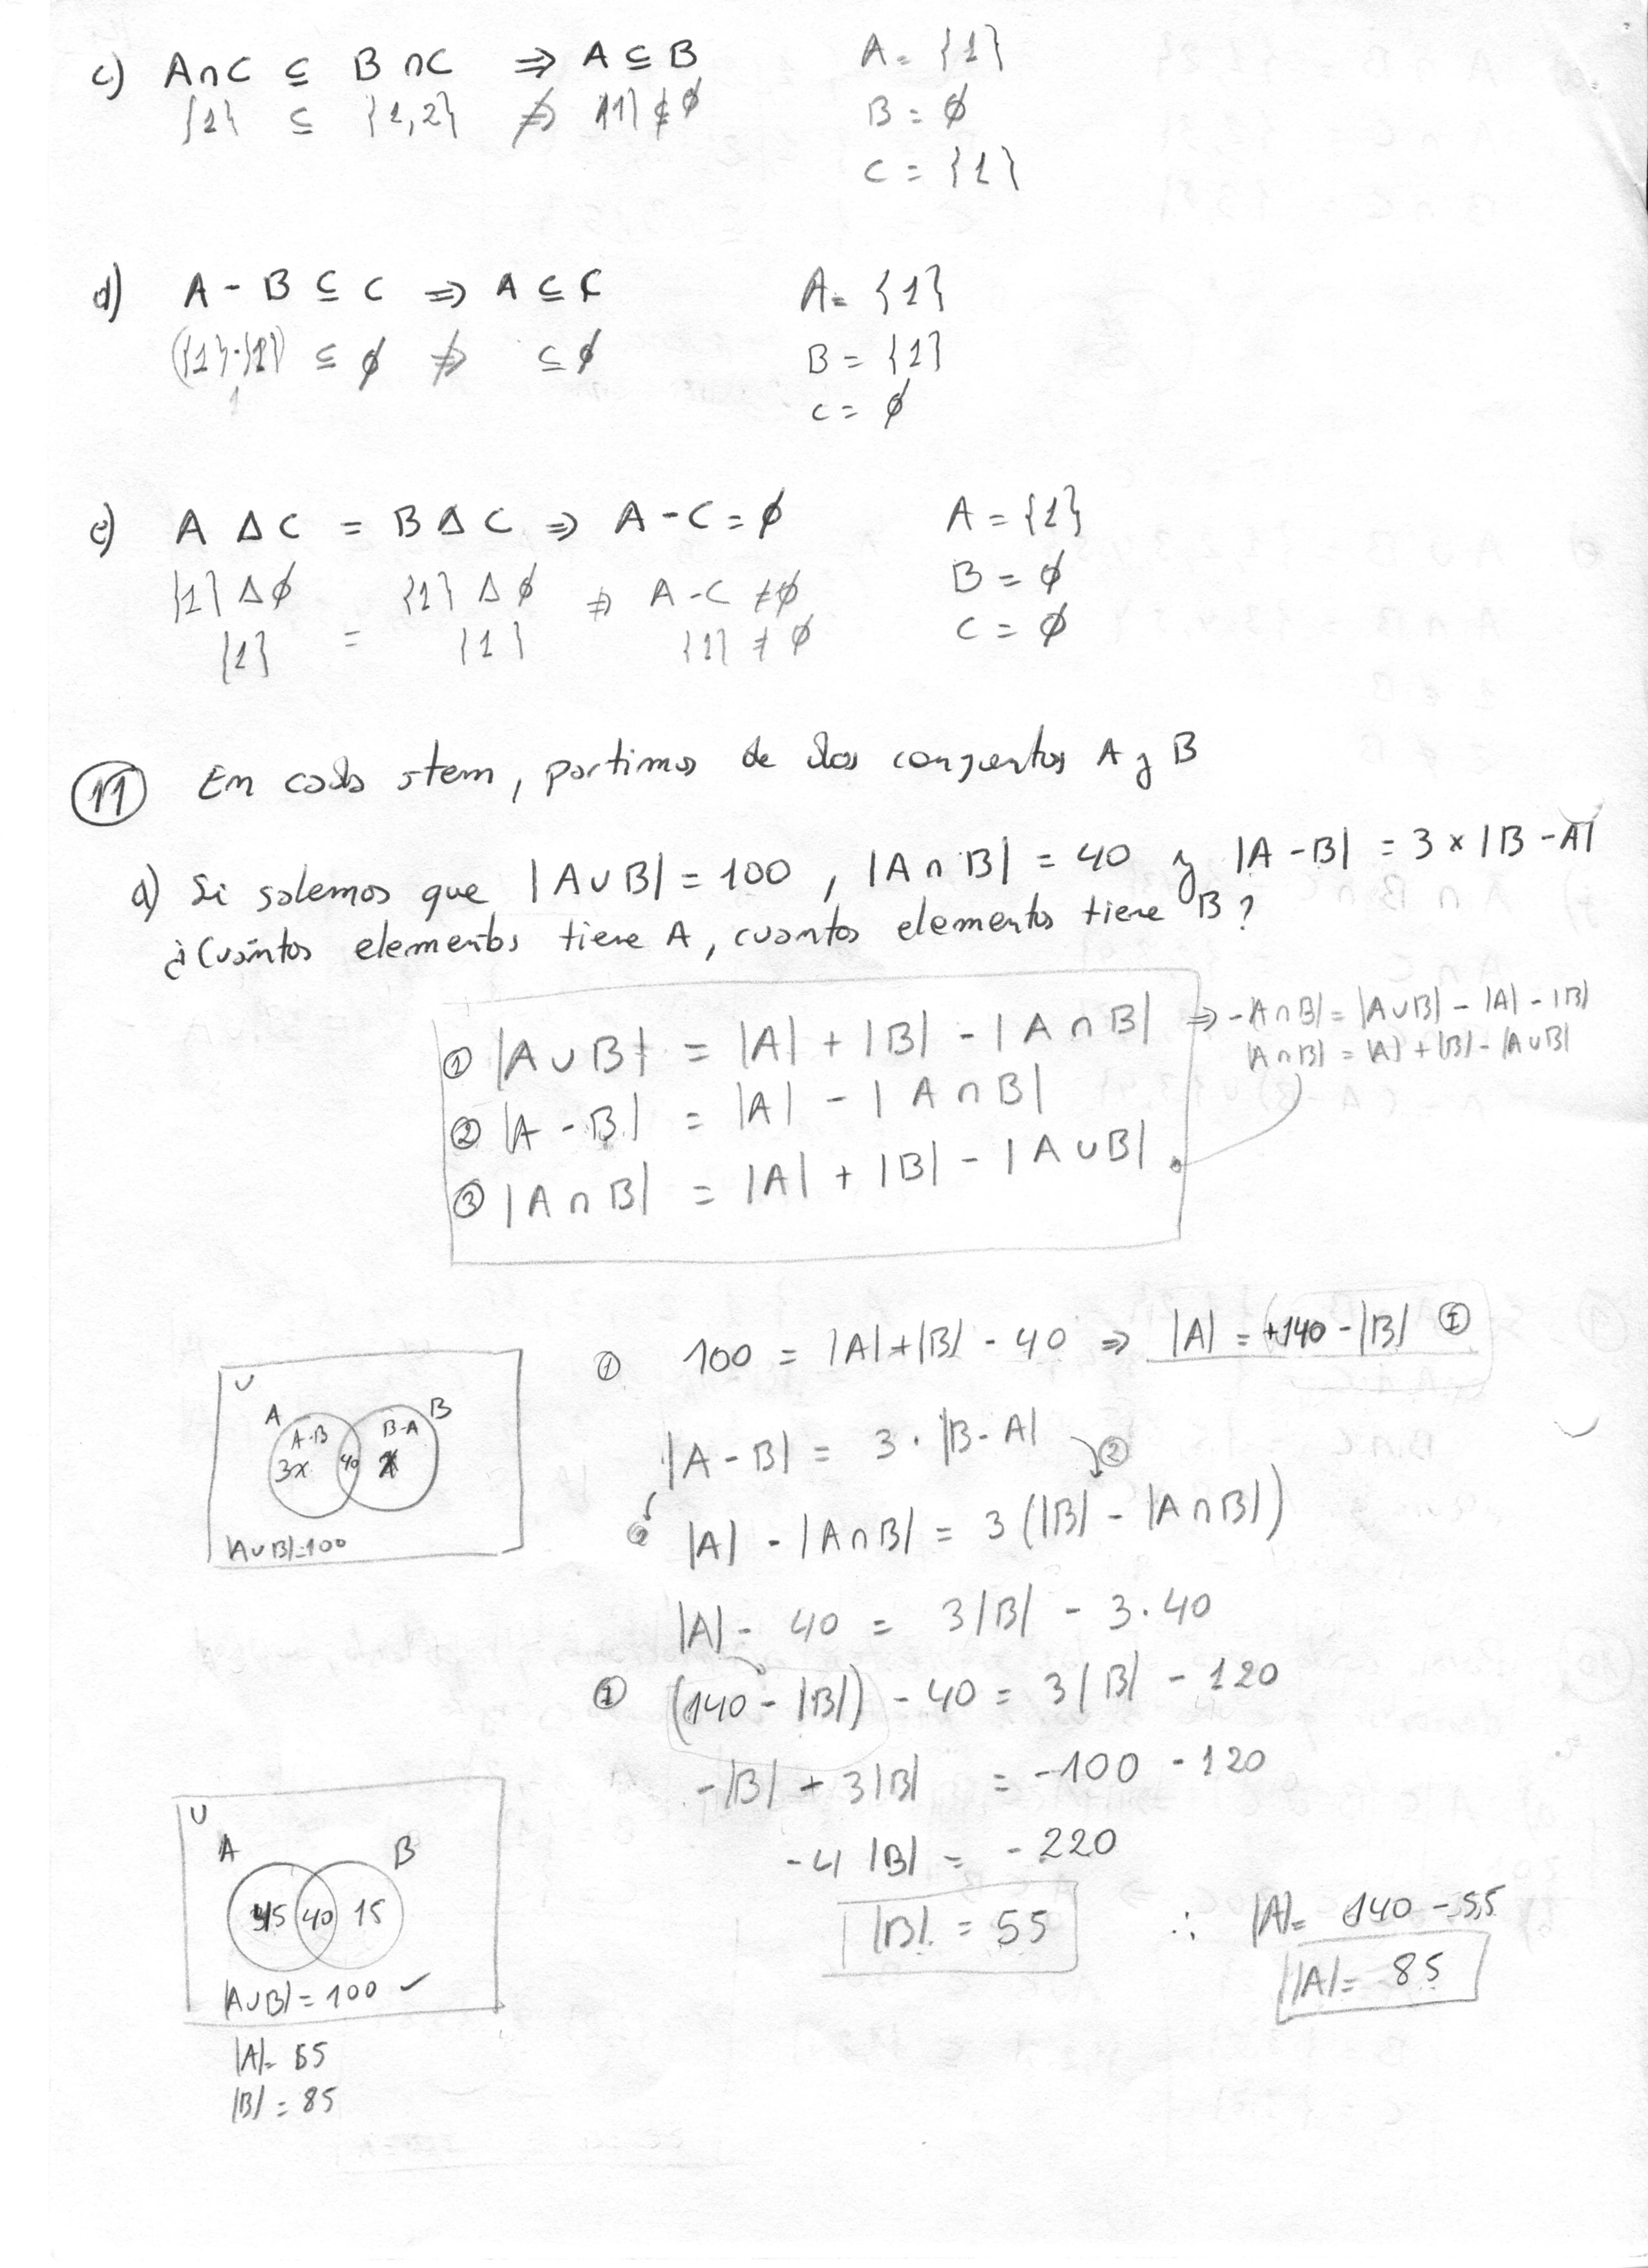 c) A∩C ⊆ B∩C ⇒ A ⊆ B
{1} ⊆ {1,2} ⇏ {1} ⊈ ∅
A = {1}
B = ∅
C = {1}
d) A - B ⊆ C ⇒ A ⊆ C
({1}-{1}) ⊆ ∅ ⇏ ⊆ ∅
A = {1}
B = {1}
C = ∅
e) A Δ C = B Δ C ⇒ A - C = ∅
{1} Δ ∅ {1} Δ ∅ ⇏ A - C ≠ ∅
{1} = {1} {1} ≠ ∅
A = {1}
B = ∅
C = ∅
11 En cada item, partimos de dos conjuntos A y B
a) Si sabemos que |A∪B| = 100, |A∩B| = 40 y |A-B| = 3 × |B-A|
¿Cuántos elementos tiene A, cuantos elementos tiene B?
① |A∪B| = |A| + |B| - |A∩B| ⇒ -|A∩B| = |A∪B| - |A| - |B|
|A∩B| = |A| + |B| - |A∪B|
② |A - B| = |A| - |A∩B|
③ |A∩B| = |A| + |B| - |A∪B|
① 100 = |A|+|B| - 40 ⇒ |A| = +140 - |B| Ⓘ
U
A B
A-B B-A
3x 40 x
|A∪B|=100
|A - B| = 3 · |B - A| ②
② |A| - |A∩B| = 3 (|B| - |A∩B|)
|A| - 40 = 3|B| - 3.40
Ⓘ (140 - |B|) - 40 = 3|B| - 120
-|B| + 3|B| = -100 - 120
-4 |B| = -220
|B| = 55 ∴ |A| = 140 - 55
|A| = 85
U
A B
45 40 15
|A∪B| = 100 ✓
|A| = 55
|B| = 85